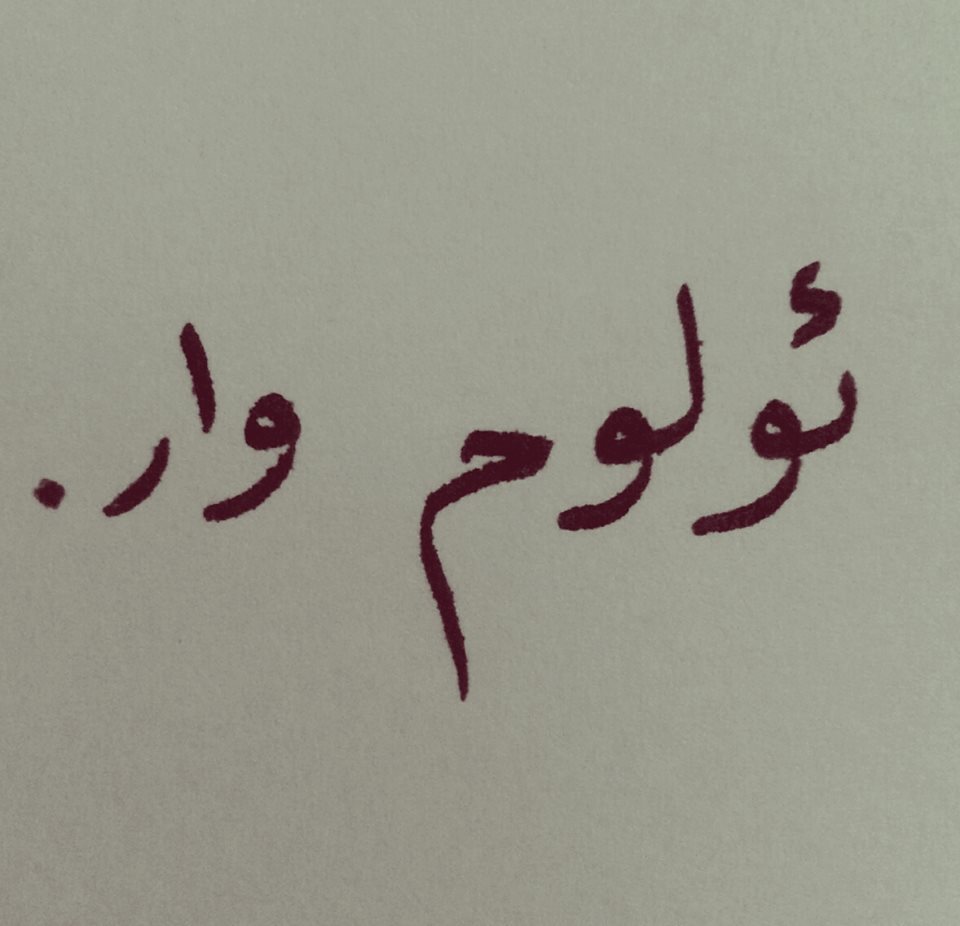 ئولوم وار.